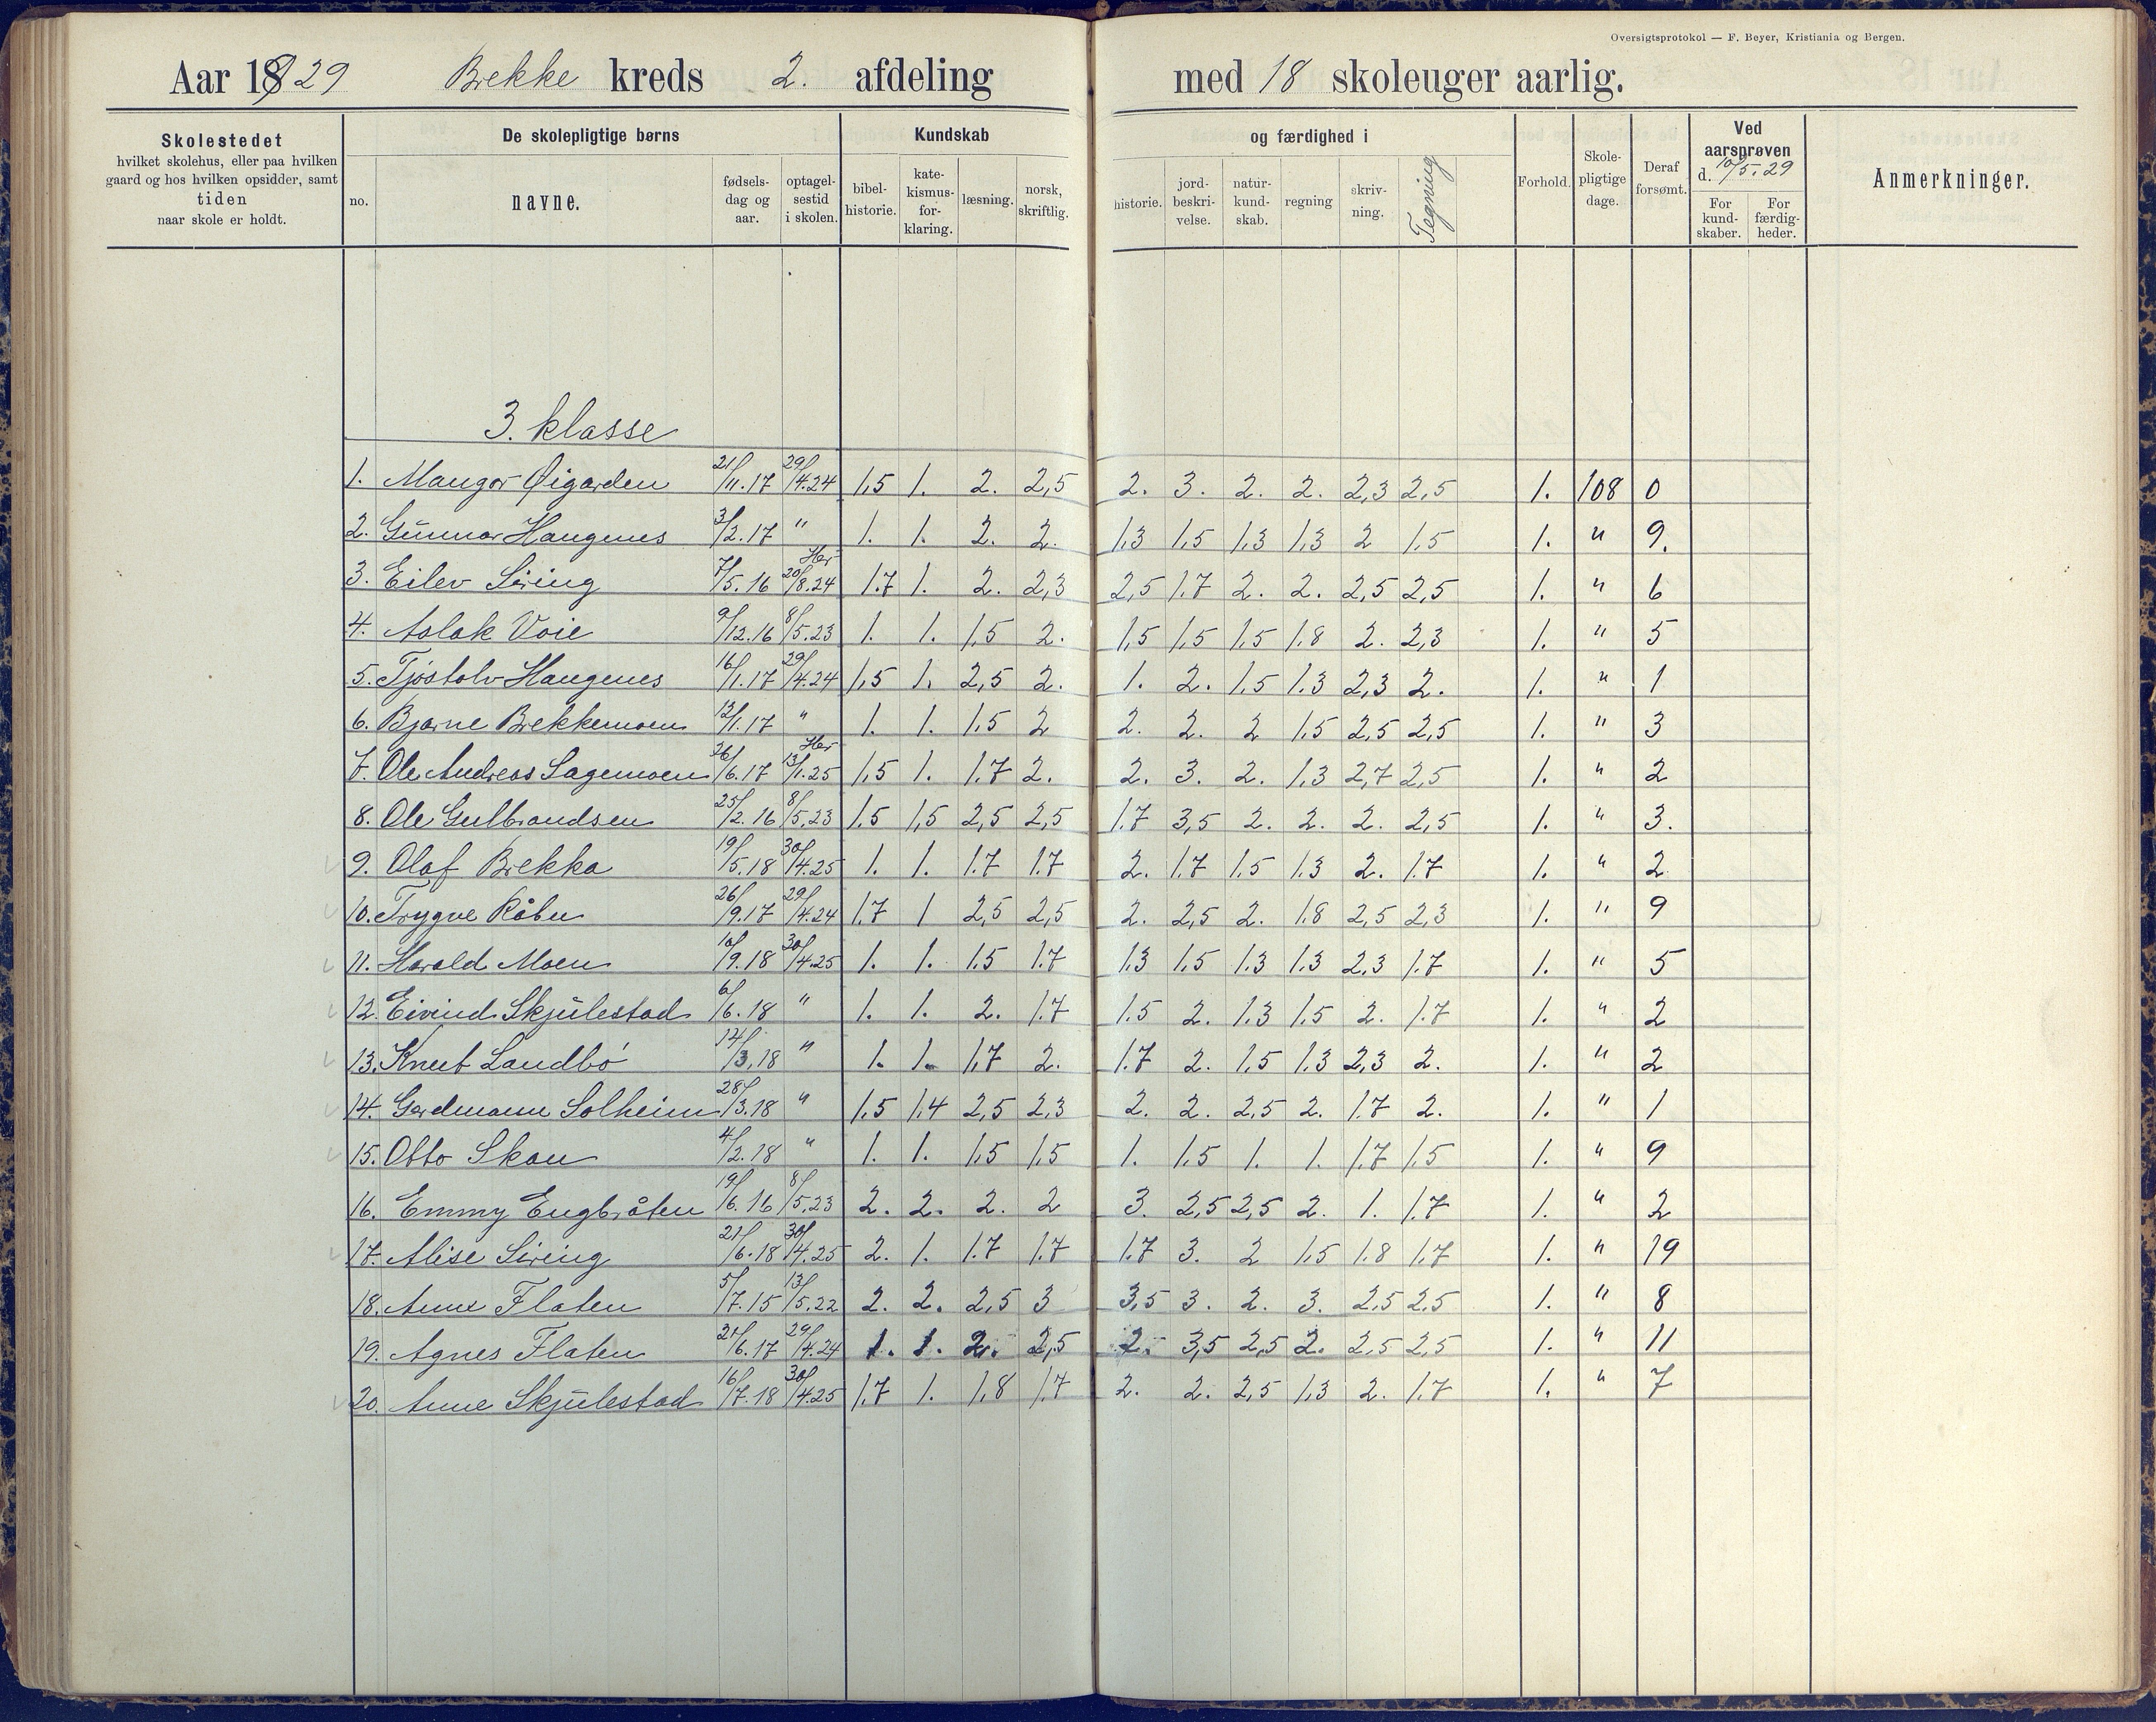 Oversigtsprotokol — F. Beyer, Kristiania og Bergen.
Aar 1929 Brekke kreds 2. afdeling med 18 skoleuger aarlig.
Skolestedet
hvilket skolehus, eller paa hvilken
gaard og hos hvilken opsidder, samt
tiden
naar skole er holdt.
De skolepligtige børns
no.
navne.
fødsels-
dag og
aar.
optagel-
sestid
i skolen.
Kundskab
bibel-
historie.
kate-
kismus-
for-
klaring.
læsning.
norsk,
skriftlig.
og færdighed i
historie.
jord-
beskri-
velse.
natur-
kund-
skab.
regning
skriv-
ning.
Tegning
Forhold.
Skole-
pligtige
dage.
Deraf
forsømt.
Ved
aarsprøven
d. 10/5.29
For
kund-
skaber.
For
færdig-
heder.
Anmerkninger.
3. klasse
1. Mangor Øigarden 21/11.17 29/4.24 1,5 1. 2. 2,5 2. 3. 2. 2. 2,3 2,5 1. 108 0
2. Gunnar Haugenes 3/2.17 " 1. 1. 2. 2. 1,3 1,5 1,3 1,3 2 1,5 1. " 9.
3. Eilev Siring 7/5.16 Her 20/8.24 1.7 1. 2. 2,3 2,5 1.7 2. 2. 2,5 2,5 1. " 6
4. Aslak Voie 9/12.16 8/5.23 1. 1. 1,5 2. 1,5 1,5 1,5 1,8 2. 2,3 1. " 5
5. Tjøstolv Haugenes 16/1.17 29/4.24 1,5 1. 2,5 2. 1. 2. 1,5 1.3 2,3 2. 1. " 1
6. Bjarne Brekkemoen 12/1.17 " 1. 1. 1,5 2 2. 2. 2 1,5 2,5 2,5 1. " 3
7. Ole Andreas Sagemoen 26/6.17 Her 13/1.25 1,5 1. 1.7 2. 2. 3. 2. 1,3 2,7 2,5 1. " 2
8. Ole Gulbrandsen 25/2.16 8/5.23 1.5 1,5 2,5 2,5 1.7 3,5 2. 2. 2. 2,5 1. " 3.
9. Olaf Brekka 19/5.18 30/4.25 1. 1. 1.7 1.7 2. 1.7 1.5 1.3 2. 1.7 1. " 2
10. Trygve Råbu 26/9.17 29/4.24 1.7 1 2,5 2,5 2. 2,5 2. 1.8 2,5 2,3 1. " 9
11. Harald Moen 10/9.18 30/4.25 1. 1. 1.5 1.7 1.3 1.5 1.3 1.3 2,3 1.7 1. " 5
12. Eivind Skjulestad 6/6.18 " 1. 1. 2. 1.7 1.5 2. 1.3 1.5 2. 1.7 1. " 2
13. Knut Landbø 14/3.18 " 1. 1. 1.7 2. 1.7 2. 1.5 1.3 2,3 2. 1. " 2
14. Gerdmann Solheim 28/3.18 " 1,5 1,4 2,5 2,3 2. 2. 2,5 2. 1.7 2. 1. " 1
15. Otto Skau 4/2.18 " 1. 1. 1,5 1,5 1. 1.5 1. 1. 1.7 1.5 1. " 9
16. Emmy Engbråten 19/6.16 8/5.23 2. 2. 2. 2 3. 2,5 2,5 2. 1. 1.7 1. " 2
17. Alise Siring 21/6.18 30/4.25 2. 1. 1.7 1.7 1.7 3. 2 1,5 1.8 1.7 1. " 19
18. Anne Flaten 5/7.15 13/5.22 2. 2. 2,5 3 3,5 3. 2. 3. 2,5 2,5 1. " 8
19. Agnes Flaten 21/6.17 29/4.24 1. 1. 2. 2,5 2. 3,5 2,5 2. 2,5 2,5 1. " 11
20. Anne Skjulestad 16/7.18 30/4.25 1.7 1. 1,8 1.7 2. 2. 2,5 1,3 2. 1.7 1. " 7